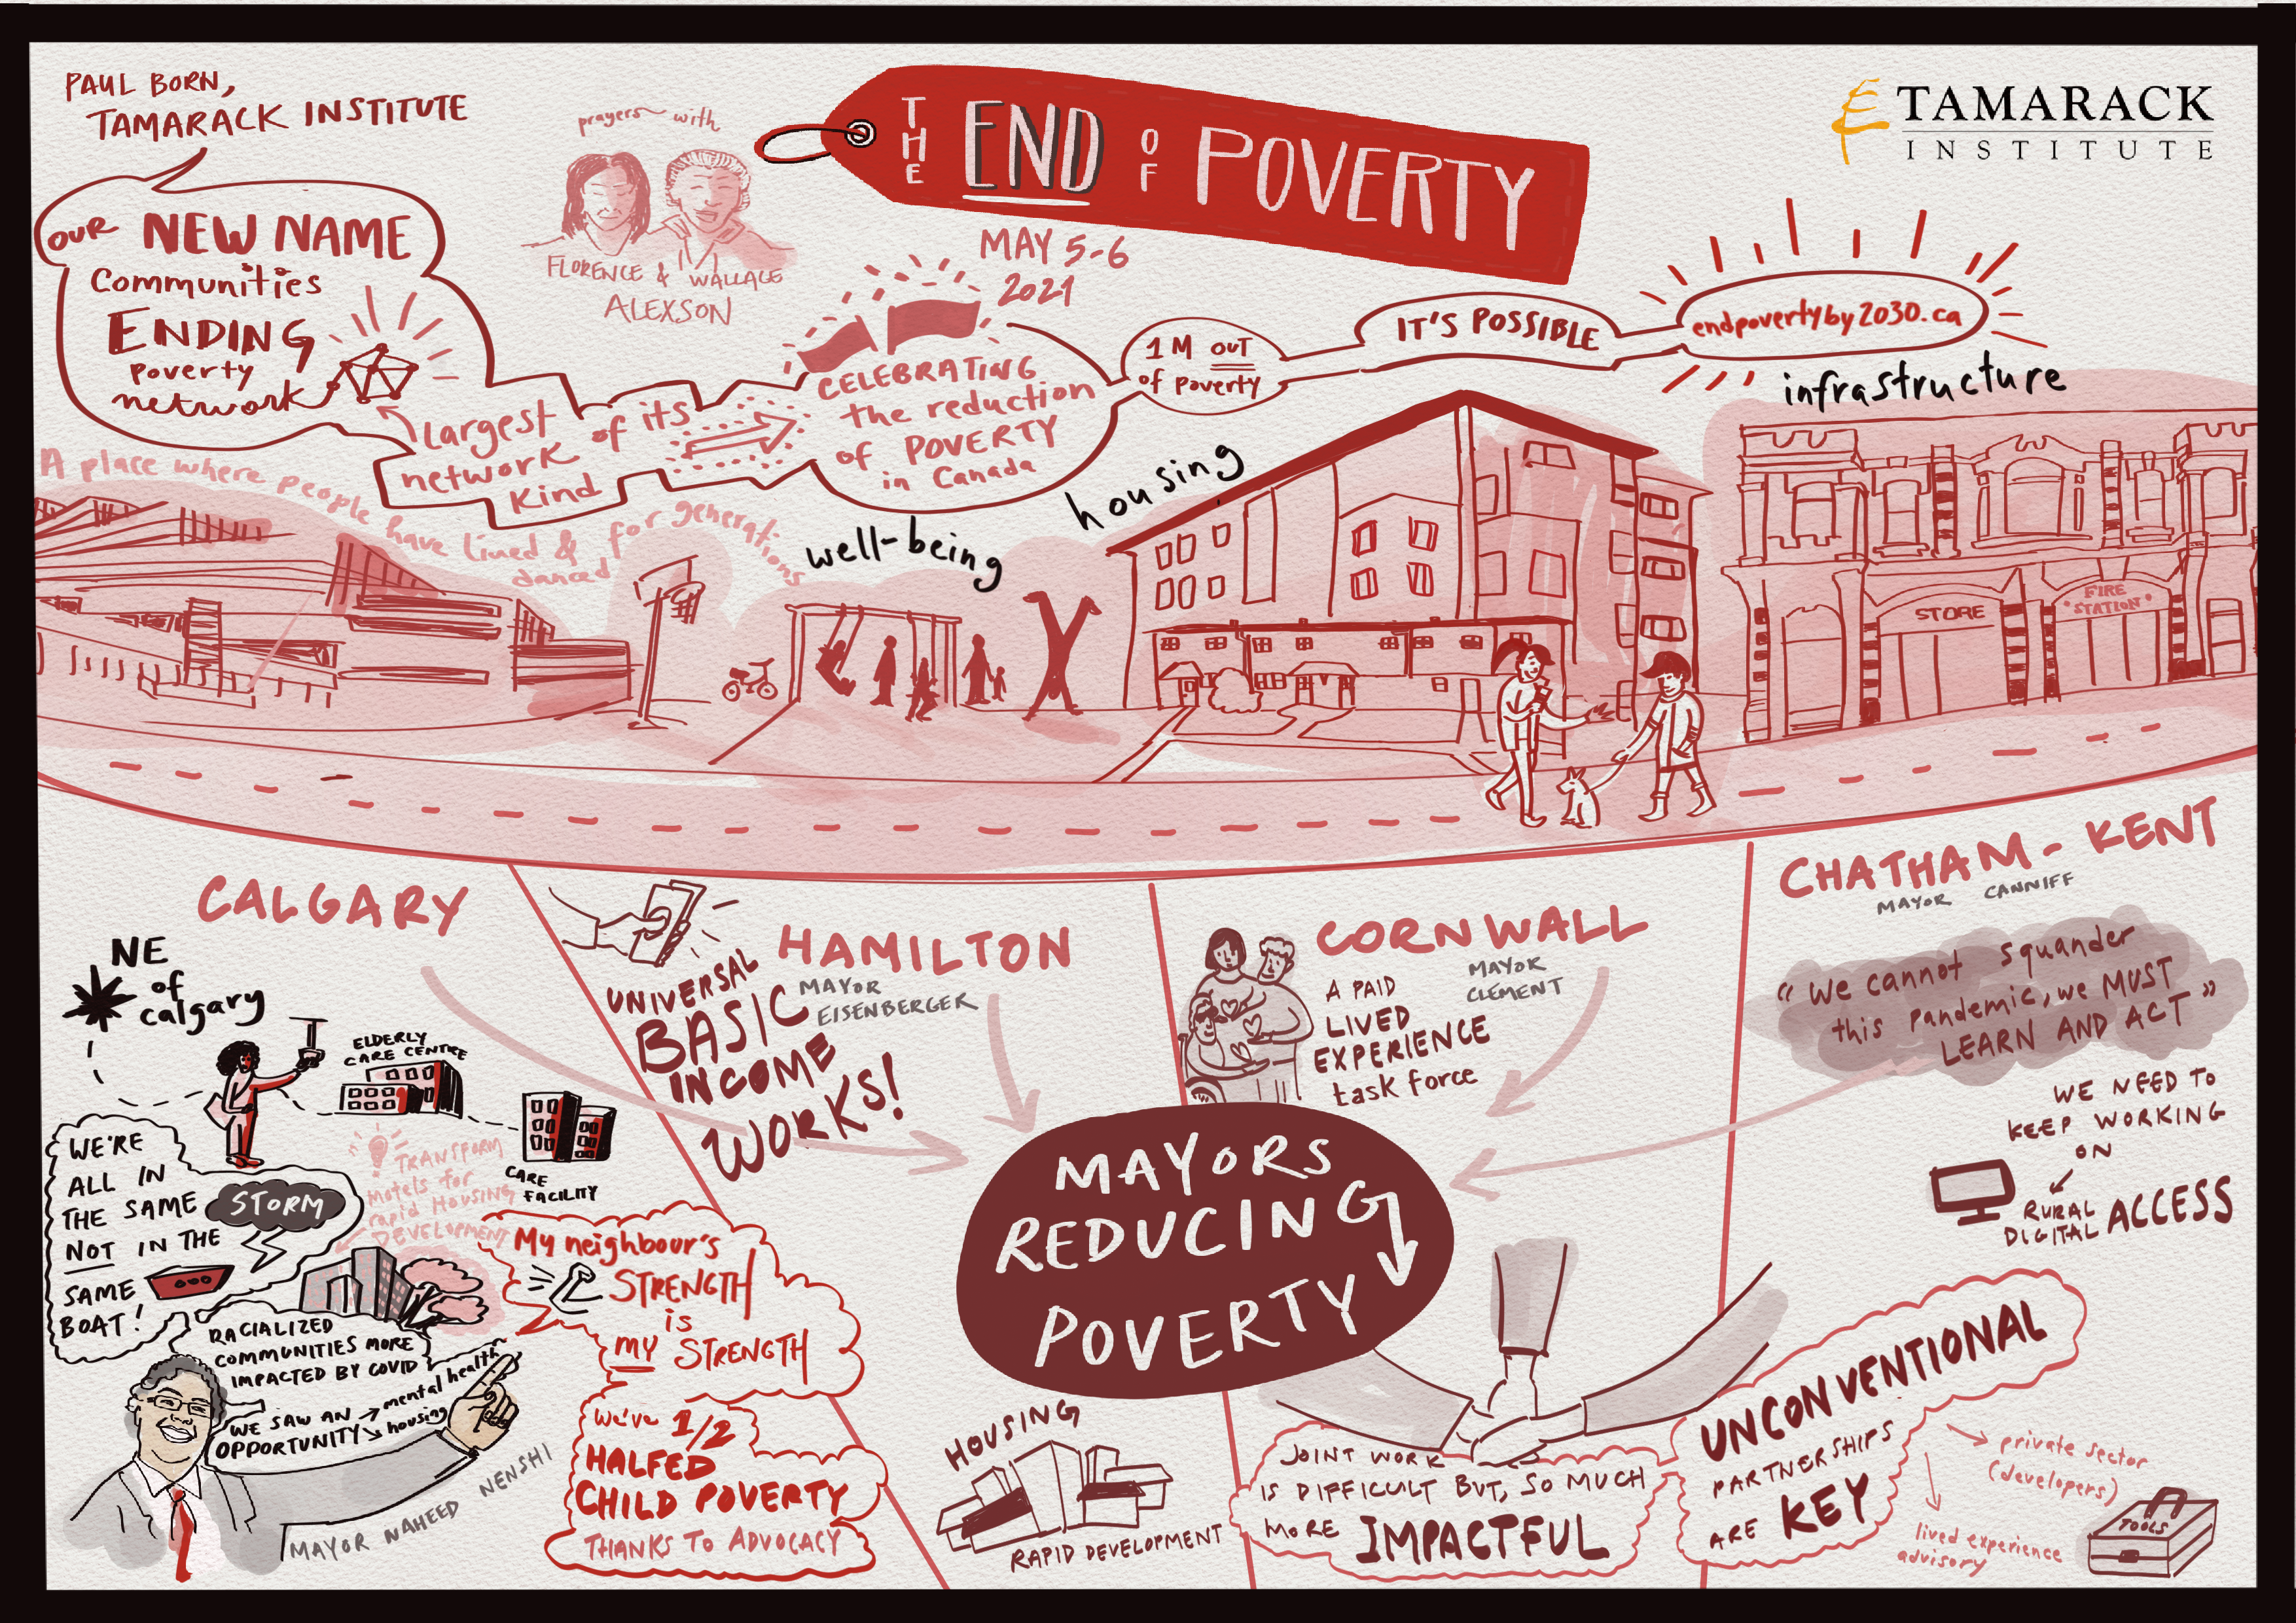 PAUL BORN,
TAMARACK INSTITUTE
OUR NEW NAME
Communities
ENDING
Poverty
network
Largest
network of its
kind
prayers with
FLORENCE & WALLACE
ALEXSON
THE END OF POVERTY
MAY 5-6
2021
TAMARACK
INSTITUTE
CELEBRATING
the reduction
of POVERTY
in Canada
1M OUT
of poverty
IT'S POSSIBLE
endpovertyby2030.ca
A place where people have lived & danced for generations
well-being
housing
infrastructure
STORE
FIRE
STATION
CALGARY
NE
of
calgary
ELDERLY
CARE CENTRE
CARE
FACILITY
WE'RE
ALL IN
THE SAME
STORM
NOT IN THE
SAME
BOAT!
TRANSFORM
motels for
rapid HOUSING
DEVELOPMENT
RACIALIZED
COMMUNITIES MORE
IMPACTED BY COVID
WE SAW AN
OPPORTUNITY
mental health
housing
MAYOR NAHEED NENSHI
My neighbour's
STRENGTH
is
MY STRENGTH
We've 1/2
HALFED
CHILD POVERTY
THANKS TO ADVOCACY
HAMILTON
MAYOR
EISENBERGER
UNIVERSAL
BASIC
INCOME
WORKS!
HOUSING
RAPID DEVELOPMENT
MAYORS
REDUCING
POVERTY
CORNWALL
MAYOR
CLEMENT
A PAID
LIVED
EXPERIENCE
task force
JOINT WORK
IS DIFFICULT BUT, SO MUCH
MORE IMPACTFUL
CHATHAM-KENT
MAYOR CANNIFF
"We cannot squander
this pandemic, we MUST
LEARN AND ACT"
WE NEED TO
KEEP WORKING
ON
RURAL
DIGITAL ACCESS
UNCONVENTIONAL
PARTNERSHIPS
ARE KEY
private sector
(developers)
lived experience
advisory
TOOLS